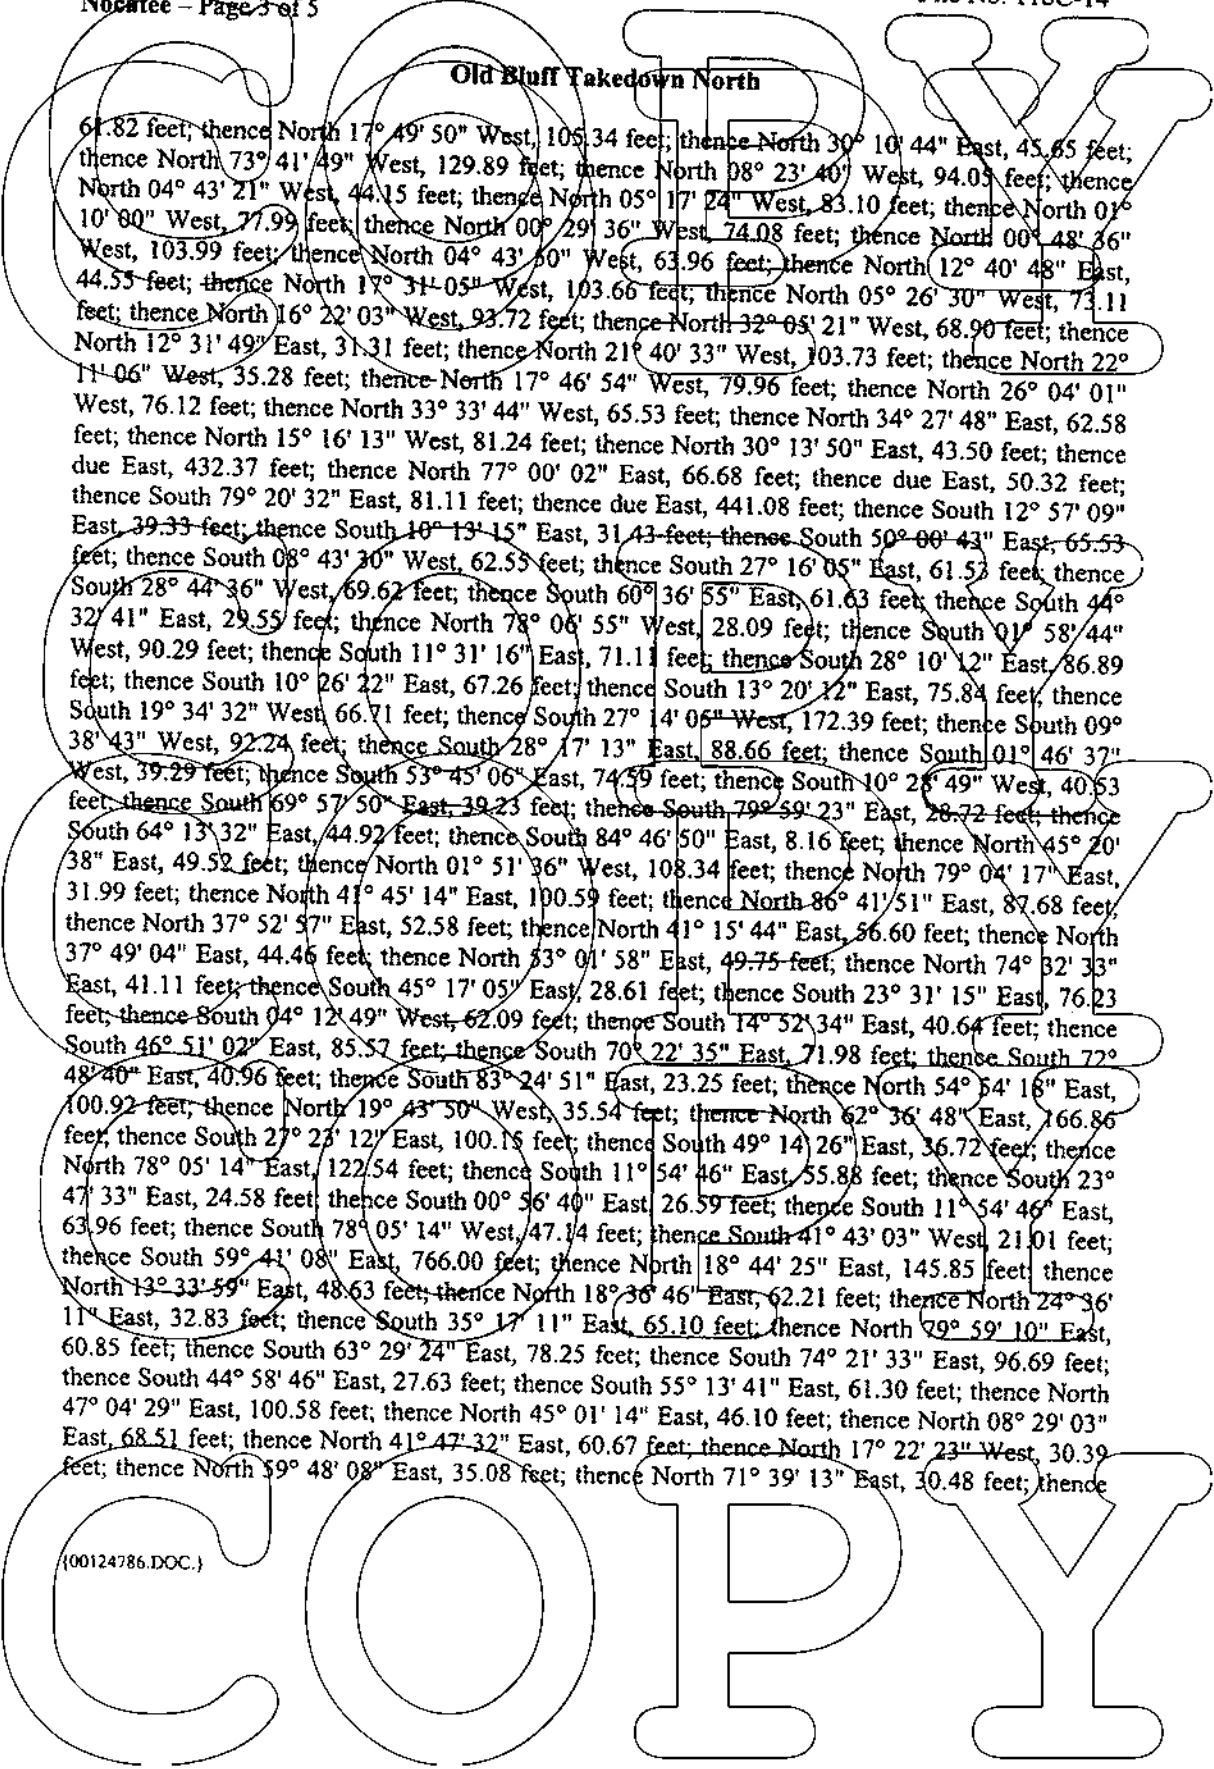 Nocatee – Page 3 of 5
File No. 118C-14
Old Bluff Takedown North
61.82 feet; thence North 17° 49' 50" West, 105.34 feet; thence North 30° 10' 44" East, 45.65 feet;
thence North 73° 41' 49" West, 129.89 feet; thence North 08° 23' 40" West, 94.05 feet; thence
North 04° 43' 21" West, 44.15 feet; thence North 05° 17' 24" West, 83.10 feet; thence North 01°
10' 00" West, 77.99 feet; thence North 00° 29' 36" West, 74.08 feet; thence North 00° 48' 36"
West, 103.99 feet; thence North 04° 43' 50" West, 63.96 feet; thence North 12° 40' 48" East,
44.55 feet; thence North 17° 31' 05" West, 103.66 feet; thence North 05° 26' 30" West, 73.11
feet; thence North 16° 22' 03" West, 93.72 feet; thence North 32° 05' 21" West, 68.90 feet; thence
North 12° 31' 49" East, 31.31 feet; thence North 21° 40' 33" West, 103.73 feet; thence North 22°
11' 06" West, 35.28 feet; thence North 17° 46' 54" West, 79.96 feet; thence North 26° 04' 01"
West, 76.12 feet; thence North 33° 33' 44" West, 65.53 feet; thence North 34° 27' 48" East, 62.58
feet; thence North 15° 16' 13" West, 81.24 feet; thence North 30° 13' 50" East, 43.50 feet; thence
due East, 432.37 feet; thence North 77° 00' 02" East, 66.68 feet; thence due East, 50.32 feet;
thence South 79° 20' 32" East, 81.11 feet; thence due East, 441.08 feet; thence South 12° 57' 09"
East, 39.33 feet; thence South 10° 13' 15" East, 31.43 feet; thence South 50° 00' 43" East, 65.53
feet; thence South 08° 43' 30" West, 62.55 feet; thence South 27° 16' 05" East, 61.53 feet; thence
South 28° 44' 36" West, 69.62 feet; thence South 60° 36' 55" East, 61.63 feet; thence South 44°
32' 41" East, 29.55 feet; thence North 78° 06' 55" West, 28.09 feet; thence South 01° 58' 44"
West, 90.29 feet; thence South 11° 31' 16" East, 71.11 feet; thence South 28° 10' 12" East, 86.89
feet; thence South 10° 26' 22" East, 67.26 feet; thence South 13° 20' 12" East, 75.84 feet; thence
South 19° 34' 32" West, 66.71 feet; thence South 27° 14' 06" West, 172.39 feet; thence South 09°
38' 43" West, 92.24 feet; thence South 28° 17' 13" East, 88.66 feet; thence South 01° 46' 37"
West, 39.29 feet; thence South 53° 45' 06" East, 74.59 feet; thence South 10° 28' 49" West, 40.53
feet; thence South 69° 57' 50" East, 39.23 feet; thence South 79° 59' 23" East, 28.72 feet; thence
South 64° 13' 32" East, 44.92 feet; thence South 84° 46' 50" East, 8.16 feet; thence North 45° 20'
38" East, 49.52 feet; thence North 01° 51' 36" West, 108.34 feet; thence North 79° 04' 17" East,
31.99 feet; thence North 41° 45' 14" East, 100.59 feet; thence North 86° 41' 51" East, 87.68 feet;
thence North 37° 52' 57" East, 52.58 feet; thence North 41° 15' 44" East, 56.60 feet; thence North
37° 49' 04" East, 44.46 feet; thence North 53° 01' 58" East, 49.75 feet; thence North 74° 32' 33"
East, 41.11 feet; thence South 45° 17' 05" East, 28.61 feet; thence South 23° 31' 15" East, 76.23
feet; thence South 04° 12' 49" West, 62.09 feet; thence South 14° 52' 34" East, 40.64 feet; thence
South 46° 51' 02" East, 85.57 feet; thence South 70° 22' 35" East, 71.98 feet; thence South 72°
48' 40" East, 40.96 feet; thence South 83° 24' 51" East, 23.25 feet; thence North 54° 54' 18" East,
100.92 feet; thence North 19° 43' 50" West, 35.54 feet; thence North 62° 36' 48" East, 166.86
feet; thence South 27° 23' 12" East, 100.15 feet; thence South 49° 14' 26" East, 36.72 feet; thence
North 78° 05' 14" East, 122.54 feet; thence South 11° 54' 46" East, 55.88 feet; thence South 23°
47' 33" East, 24.58 feet; thence South 00° 56' 40" East, 26.59 feet; thence South 11° 54' 46" East,
63.96 feet; thence South 78° 05' 14" West, 47.14 feet; thence South 41° 43' 03" West, 21.01 feet;
thence South 59° 41' 08" East, 766.00 feet; thence North 18° 44' 25" East, 145.85 feet; thence
North 13° 33' 59" East, 48.63 feet; thence North 18° 36' 46" East, 62.21 feet; thence North 24° 36'
11" East, 32.83 feet; thence South 35° 17' 11" East, 65.10 feet; thence North 79° 59' 10" East,
60.85 feet; thence South 63° 29' 24" East, 78.25 feet; thence South 74° 21' 33" East, 96.69 feet;
thence South 44° 58' 46" East, 27.63 feet; thence South 55° 13' 41" East, 61.30 feet; thence North
47° 04' 29" East, 100.58 feet; thence North 45° 01' 14" East, 46.10 feet; thence North 08° 29' 03"
East, 68.51 feet; thence North 41° 47' 32" East, 60.67 feet; thence North 17° 22' 23" West, 30.39
feet; thence North 59° 48' 08" East, 35.08 feet; thence North 71° 39' 13" East, 30.48 feet; thence
{00124786.DOC.}
COPY
COPY
COPY
COPY
COPY
COPY